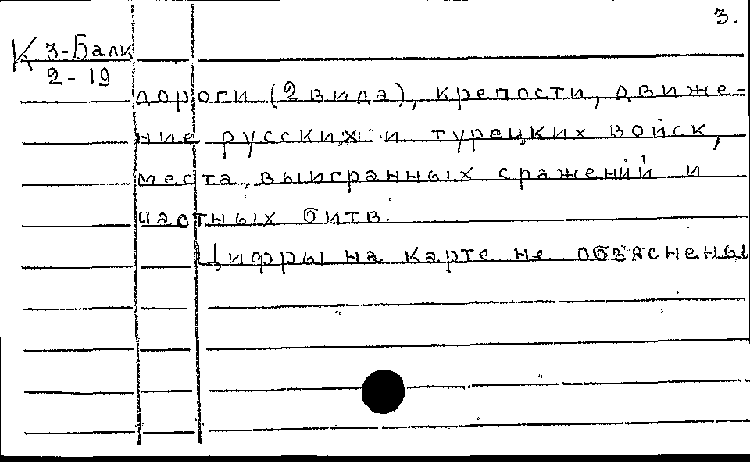 3.
К 3-Балк
2-19
дороги (2 вида), крепости, движе-
ние русских и турецких войск,
места выигранных сражений и
частных битв.
Цифры на карте не объяснены